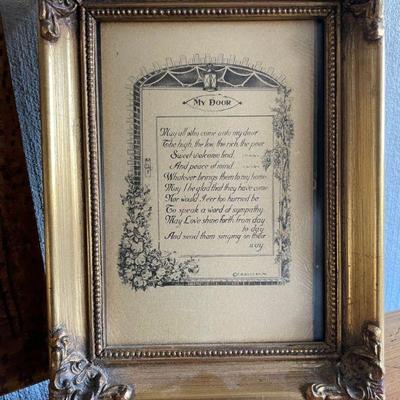 My Door
May all who come unto my door
The high, the low, the rich, the poor
Sweet welcome find
And peace of mind
Whatever brings them to my home
May I be glad that they have come
Nor would I ever too hurried be
To speak a word of sympathy
May Love shine forth from day
to day
And send them singing on their
way.